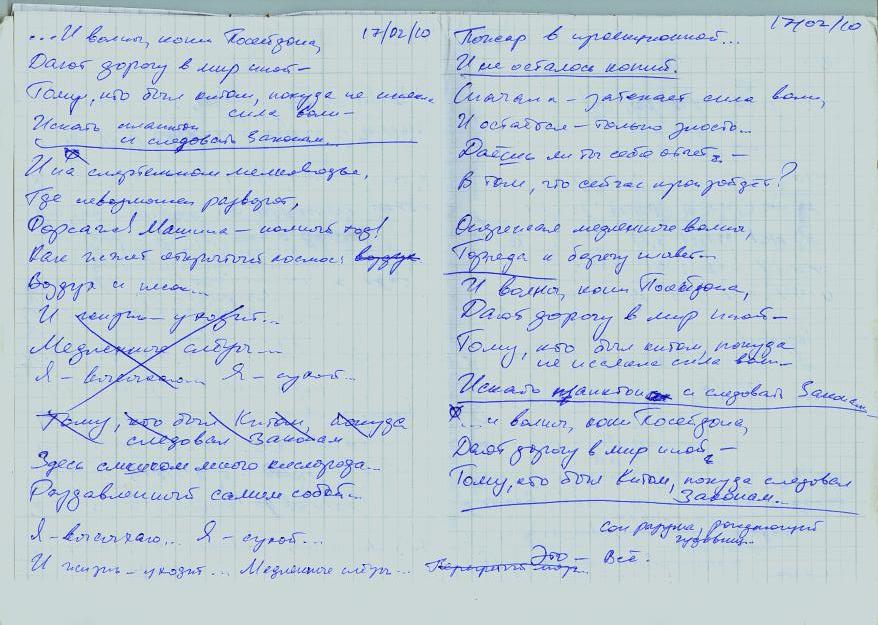 ...И волны, кони Посейдона, 17/02/10
Дают дорогу в мир иной –
Тому, кто был китом, покуда не иссякла
сила воли –
Искать планктон
и следовать Законам...
И на смертельном мелководье,
Где невозможен разворот,
Форсаж! Машина – полный ход!
Как лижет открытый космос: воздух
Воздух и песок...
И жизнь – уходит...
Медленные слёзы...
Я – высыхаю... Я – сухой...
Тому, кто был Китом, покуда
следовал Законам
Здесь слишком много кислорода...
Раздавленный самим собой...
Я – высыхаю... Я – сухой...
И жизнь – уходит... Медленные слёзы...
17/02/10
Пожар в проекционной...
И не осталось копий.
Сначала – затекает сила воли,
И остаётся – только злость...
Даёшь ли ты себе отчёт –
В том, что сейчас произойдёт?
медленные волны,
Торпеда к берегу плывёт...
И волны, кони Посейдона,
Дают дорогу в мир иной –
Тому, кто был китом, покуда
не иссякла сила воли –
Искать планктон и следовать Законам...
... и волны, кони Посейдона,
Дают дорогу в мир иной –
Тому, кто был Китом, покуда следовал
Законам...
сон разума, рождающий
чудовищ...
Это –
Всё.